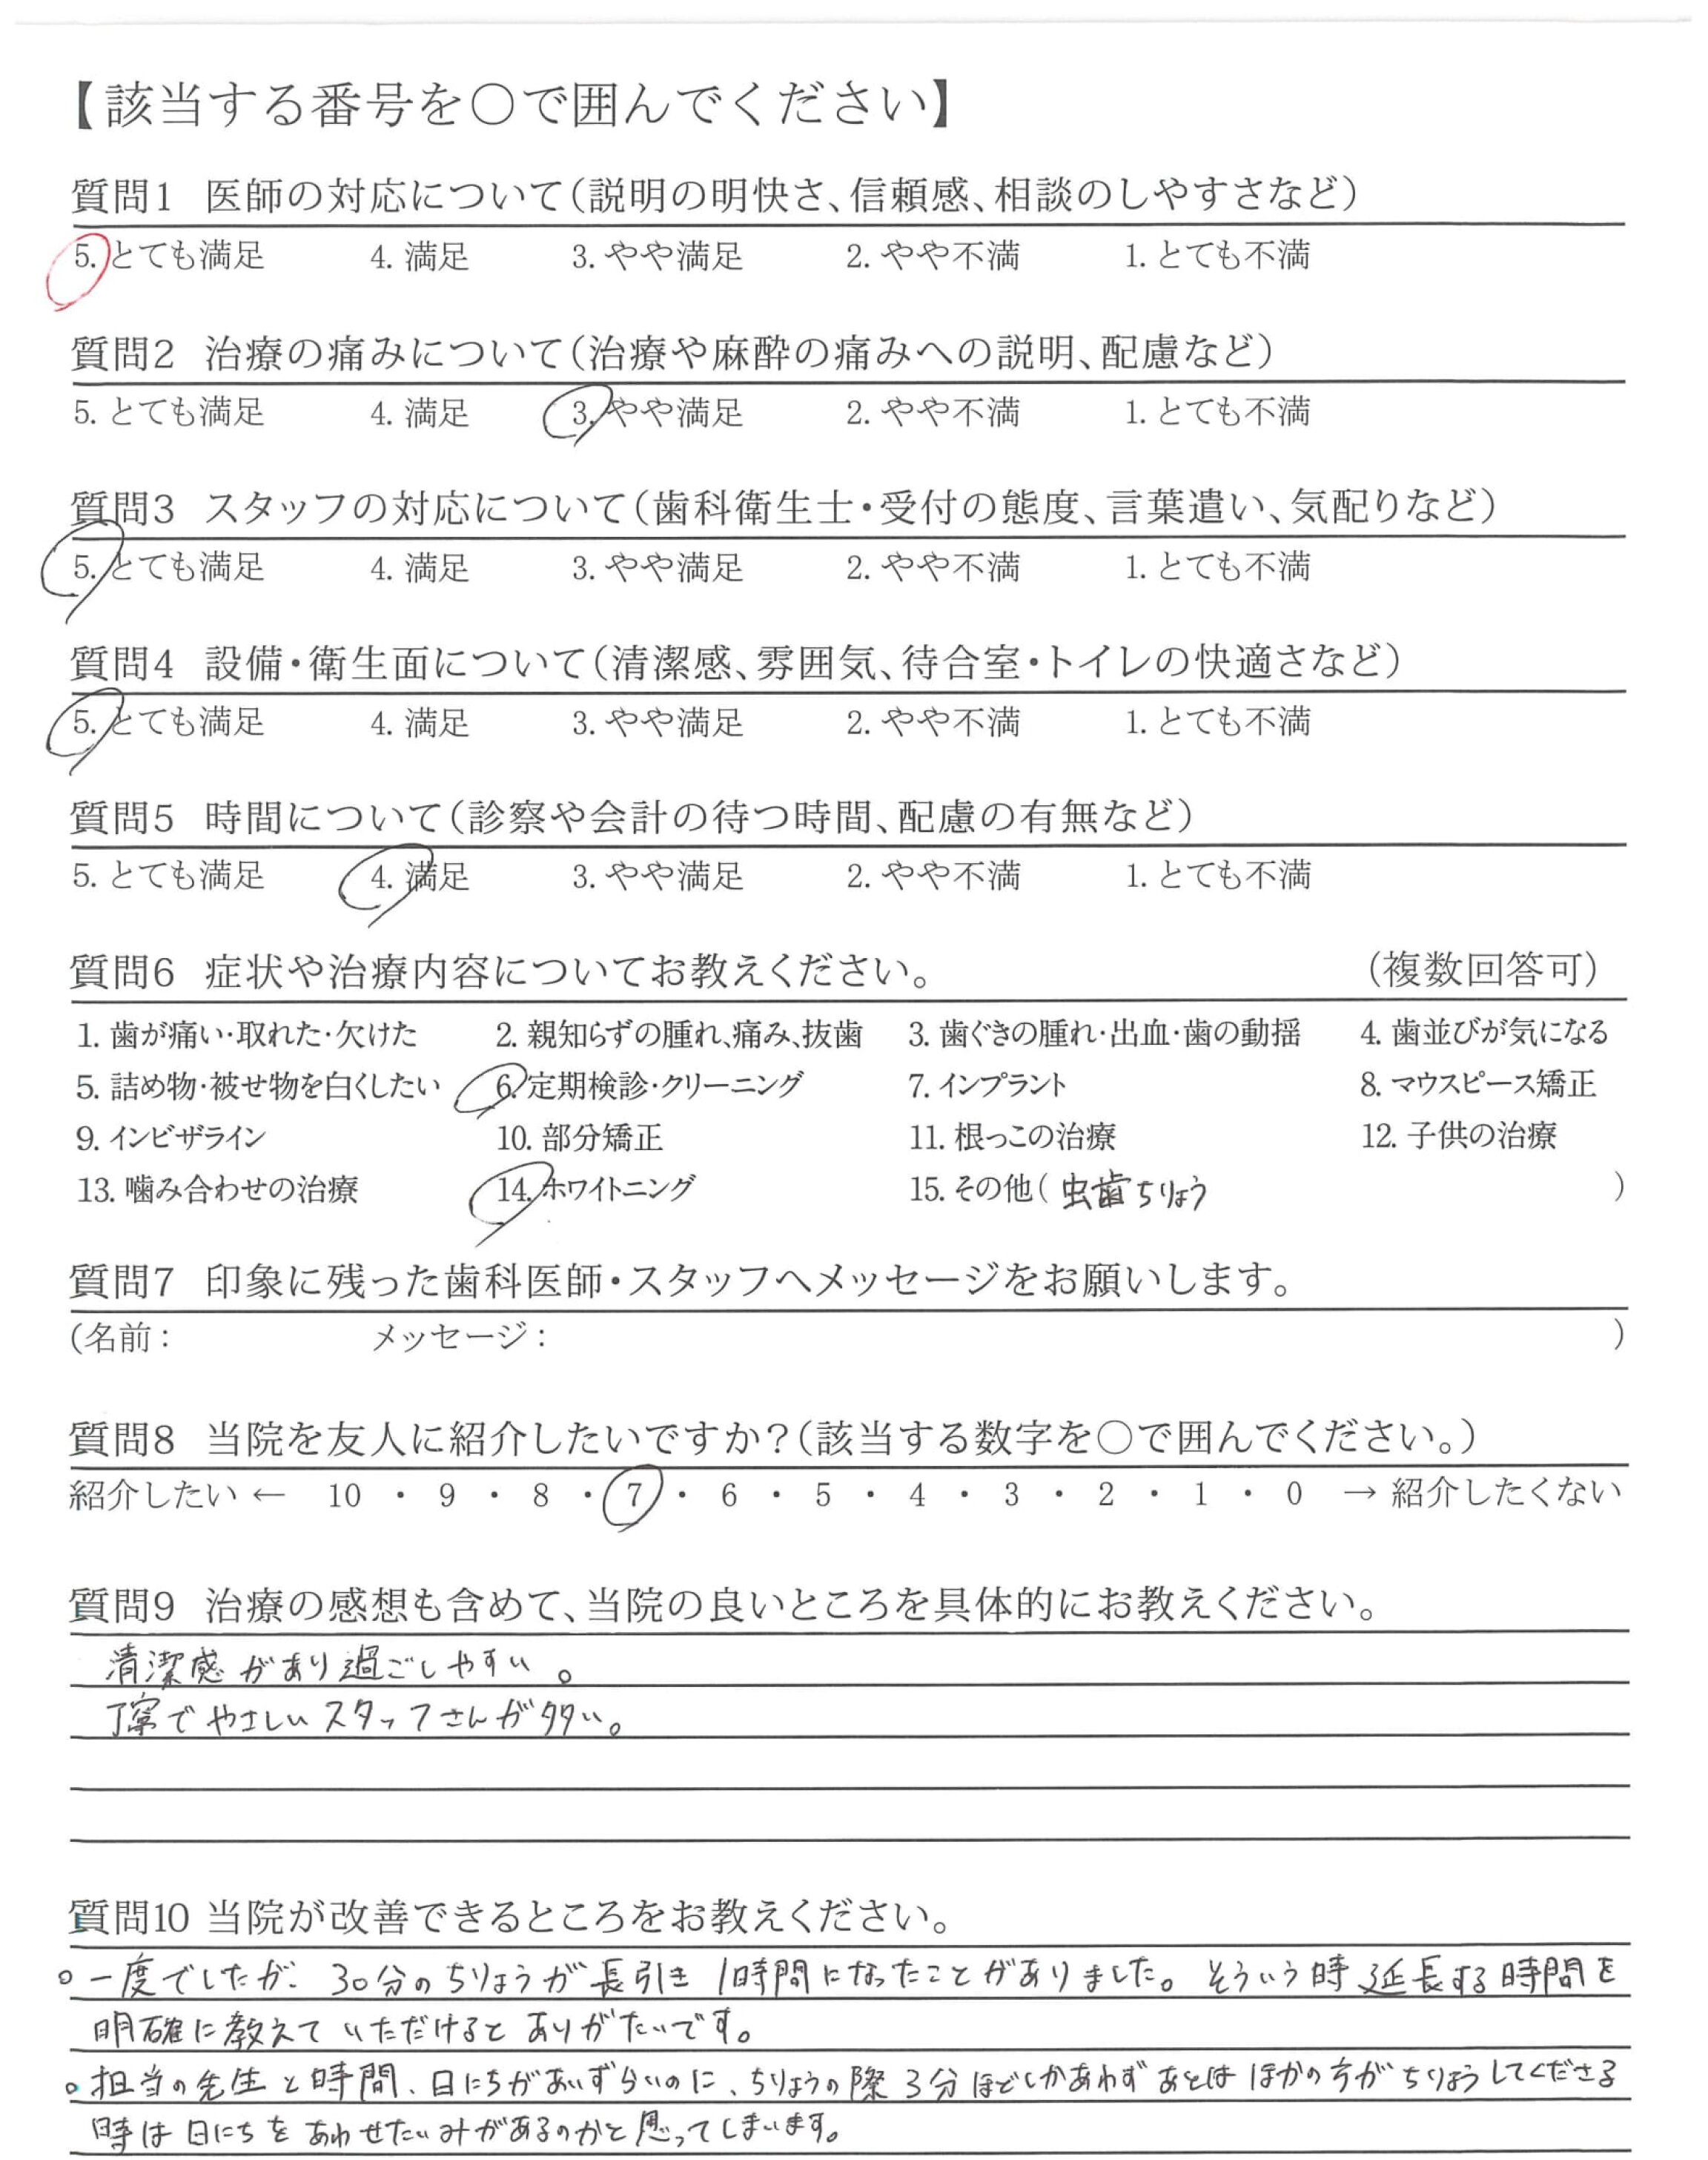 【該当する番号を○で囲んでください】
質問1 医師の対応について(説明の明快さ、信頼感、相談のしやすさなど)
5. とても満足 4. 満足 3. やや満足 2. やや不満 1. とても不満
質問2 治療の痛みについて(治療や麻酔の痛みへの説明、配慮など)
5. とても満足 4. 満足 3. やや満足 2. やや不満 1. とても不満
質問3 スタッフの対応について(歯科衛生士・受付の態度、言葉遣い、気配りなど)
5. とても満足 4. 満足 3. やや満足 2. やや不満 1. とても不満
質問4 設備・衛生面について(清潔感、雰囲気、待合室・トイレの快適さなど)
5. とても満足 4. 満足 3. やや満足 2. やや不満 1. とても不満
質問5 時間について(診察や会計の待つ時間、配慮の有無など)
5. とても満足 4. 満足 3. やや満足 2. やや不満 1. とても不満
質問6 症状や治療内容についてお教えください。 (複数回答可)
1. 歯が痛い・取れた・欠けた 2. 親知らずの腫れ、痛み、抜歯 3. 歯ぐきの腫れ・出血・歯の動揺 4. 歯並びが気になる
5. 詰め物・被せ物を白くしたい 6. 定期検診・クリーニング 7. インプラント 8. マウスピース矯正
9. インビザライン 10. 部分矯正 11. 根っこの治療 12. 子供の治療
13. 噛み合わせの治療 14. ホワイトニング 15. その他( 虫歯ちりょう )
質問7 印象に残った歯科医師・スタッフへメッセージをお願いします。
(名前: メッセージ: )
質問8 当院を友人に紹介したいですか?(該当する数字を○で囲んでください。)
紹介したい ← 10 ・ 9 ・ 8 ・ 7 ・ 6 ・ 5 ・ 4 ・ 3 ・ 2 ・ 1 ・ 0 → 紹介したくない
質問9 治療の感想も含めて、当院の良いところを具体的にお教えください。
清潔感があり過ごしやすい。
丁寧でやさしいスタッフさんが多い。
質問10 当院が改善できるところをお教えください。
○一度でしたが、30分のちりょうが長引き1時間になったことがありました。そういう時延長する時間を
明確に教えていただけるとありがたいです。
○担当の先生と時間、日にちがあいずらいのに、ちりょうの際3分ほどしかあわずあとはほかの方がちりょうしてくださる
時は日にちをあわせたいみがあるのかと思ってしまいます。